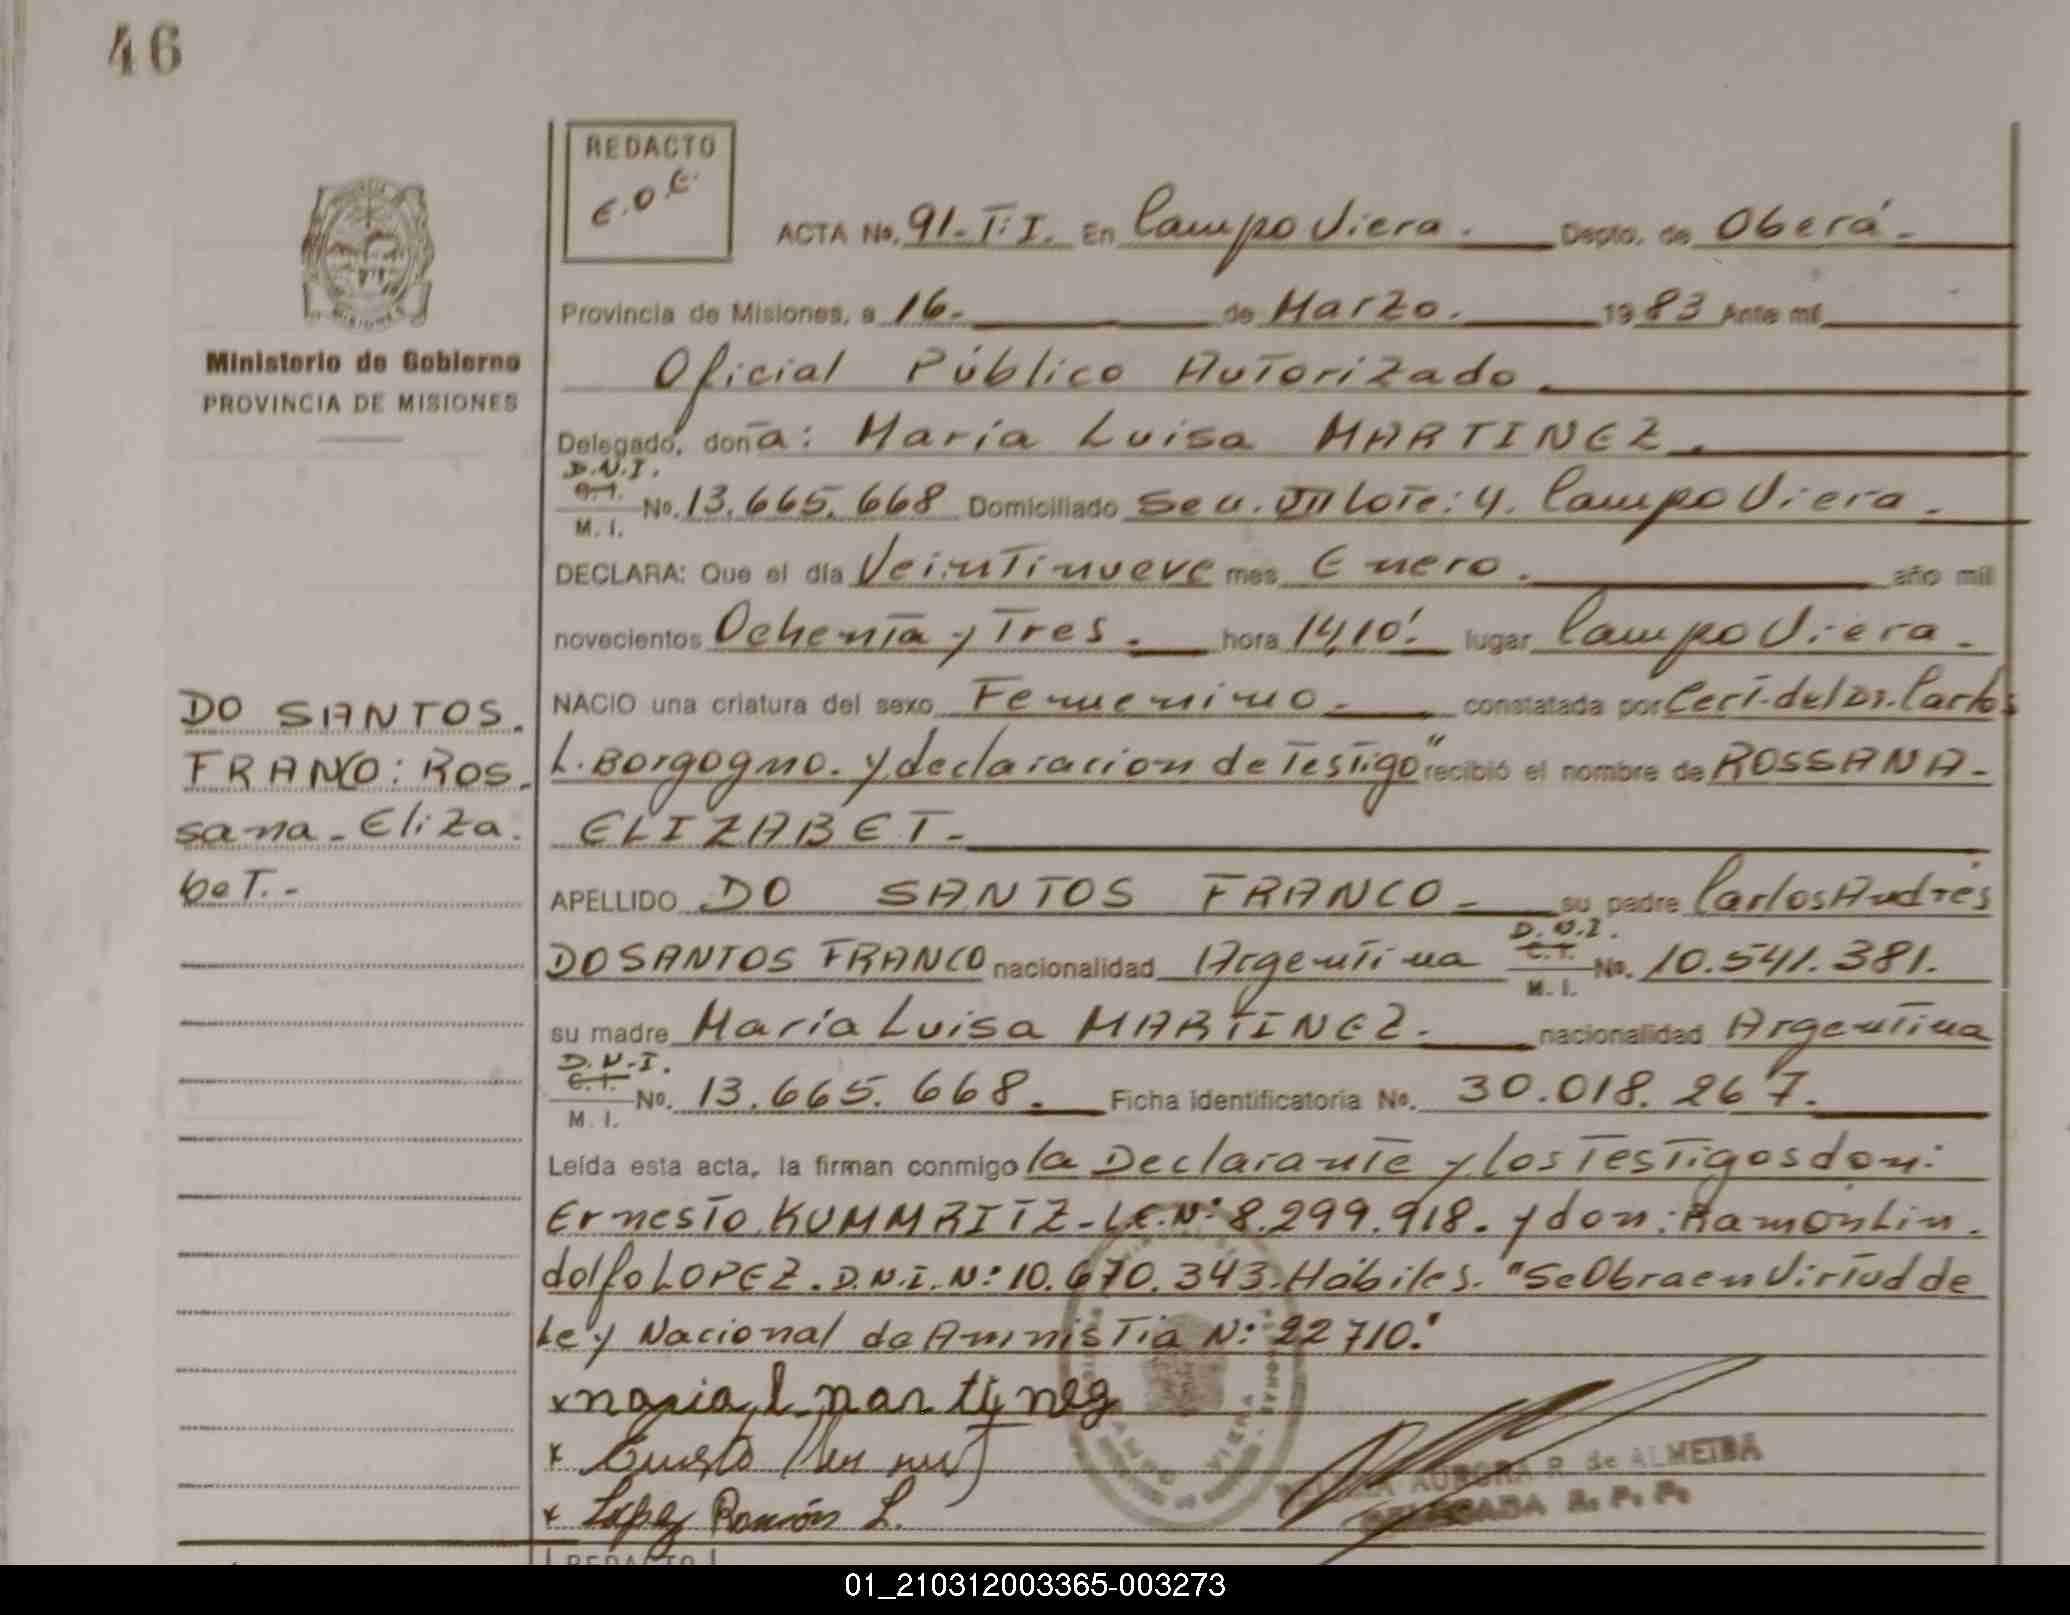 46
REDACTO
E.O.E.
ACTA No. 91-T:I. En Campo Viera. Depto. de Oberá.-
Provincia de Misiones, a 16.- de Marzo. 1983 Ante mí
Oficial Público Autorizado
Ministerio de Gobierno
PROVINCIA DE MISIONES
Delegado, doña: María Luisa MARTINEZ.
D.N.I.
M. I. No. 13.665.668 Domiciliado Lote: 4. Campo Viera.-
DECLARA: Que el día Veintinueve mes Enero. año mil
novecientos Ochenta y Tres.- hora 14,10'. lugar Campo Viera.-
NACIO una criatura del sexo Femenino.- constatada por Cert. del Dr. Carlos
L. Borgogno. y declaracion de Testigo" recibió el nombre de ROSSANA-
ELIZABET.-
DO SANTOS.
FRANCO: Ros.
sana-Eliza.
beT.-
APELLIDO DO SANTOS FRANCO.- su padre Carlos Andrés
DO SANTOS FRANCO nacionalidad Argentina D.N.I. C.I. M. I. No. 10.541.381.
su madre María Luisa MARTINEZ.- nacionalidad Argentina
D.N.I. C.I. M. I. No. 13.665.668. Ficha identificatoria No. 30.018.267.
Leída esta acta, la firman conmigo la Declarante y los Testigos don:
Ernesto KUMMRITZ-L.E.N°: 8.299.918. y don: Ramón Lin.
dolfo LOPEZ. D.N.I. N°: 10.670.343. Hábiles. "Se Obra en Virtud de
Ley Nacional de Amnistia N°: 22710."
x maria l martinez
x Ernesto
x López Ramón L.
AURORA R. de ALMEIDA
DELEGADA R. P. P.
CAMPO VIERA
REDACTO
01_210312003365-003273